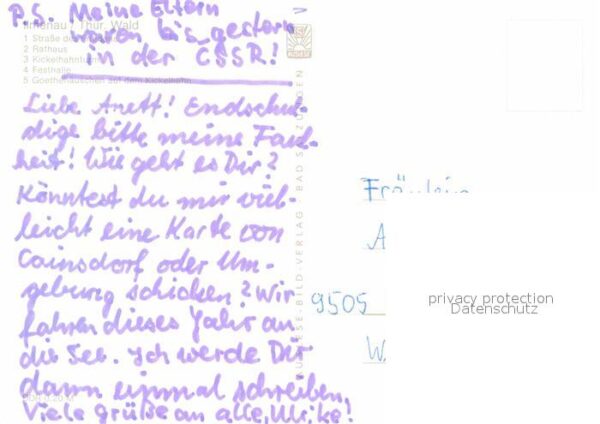 P.S. Meine Eltern
waren bis gestern
in der CSSR!
Ilmenau / Thür. Wald
1 Straße des
2 Rathaus
3 Kickelhahnturm
4 Festhalle
5 Goethehäuschen auf dem Kickelhahn
Liebe Anett! Endschul-
dige bitte meine Faul-
heit! Wie geht es Dir?
Könntest du mir viel-
leicht eine Karte von
Cainsdorf oder Um-
gebung schicken? Wir
fahren dieses Jahr an
die See. Ich werde Dir
dann einmal schreiben.
Viele grüße an alle, Ulrike!
BILD-VERLAG · BAD SALZUNGEN
Fräulein
A
9505
W
privacy protection
Datenschutz